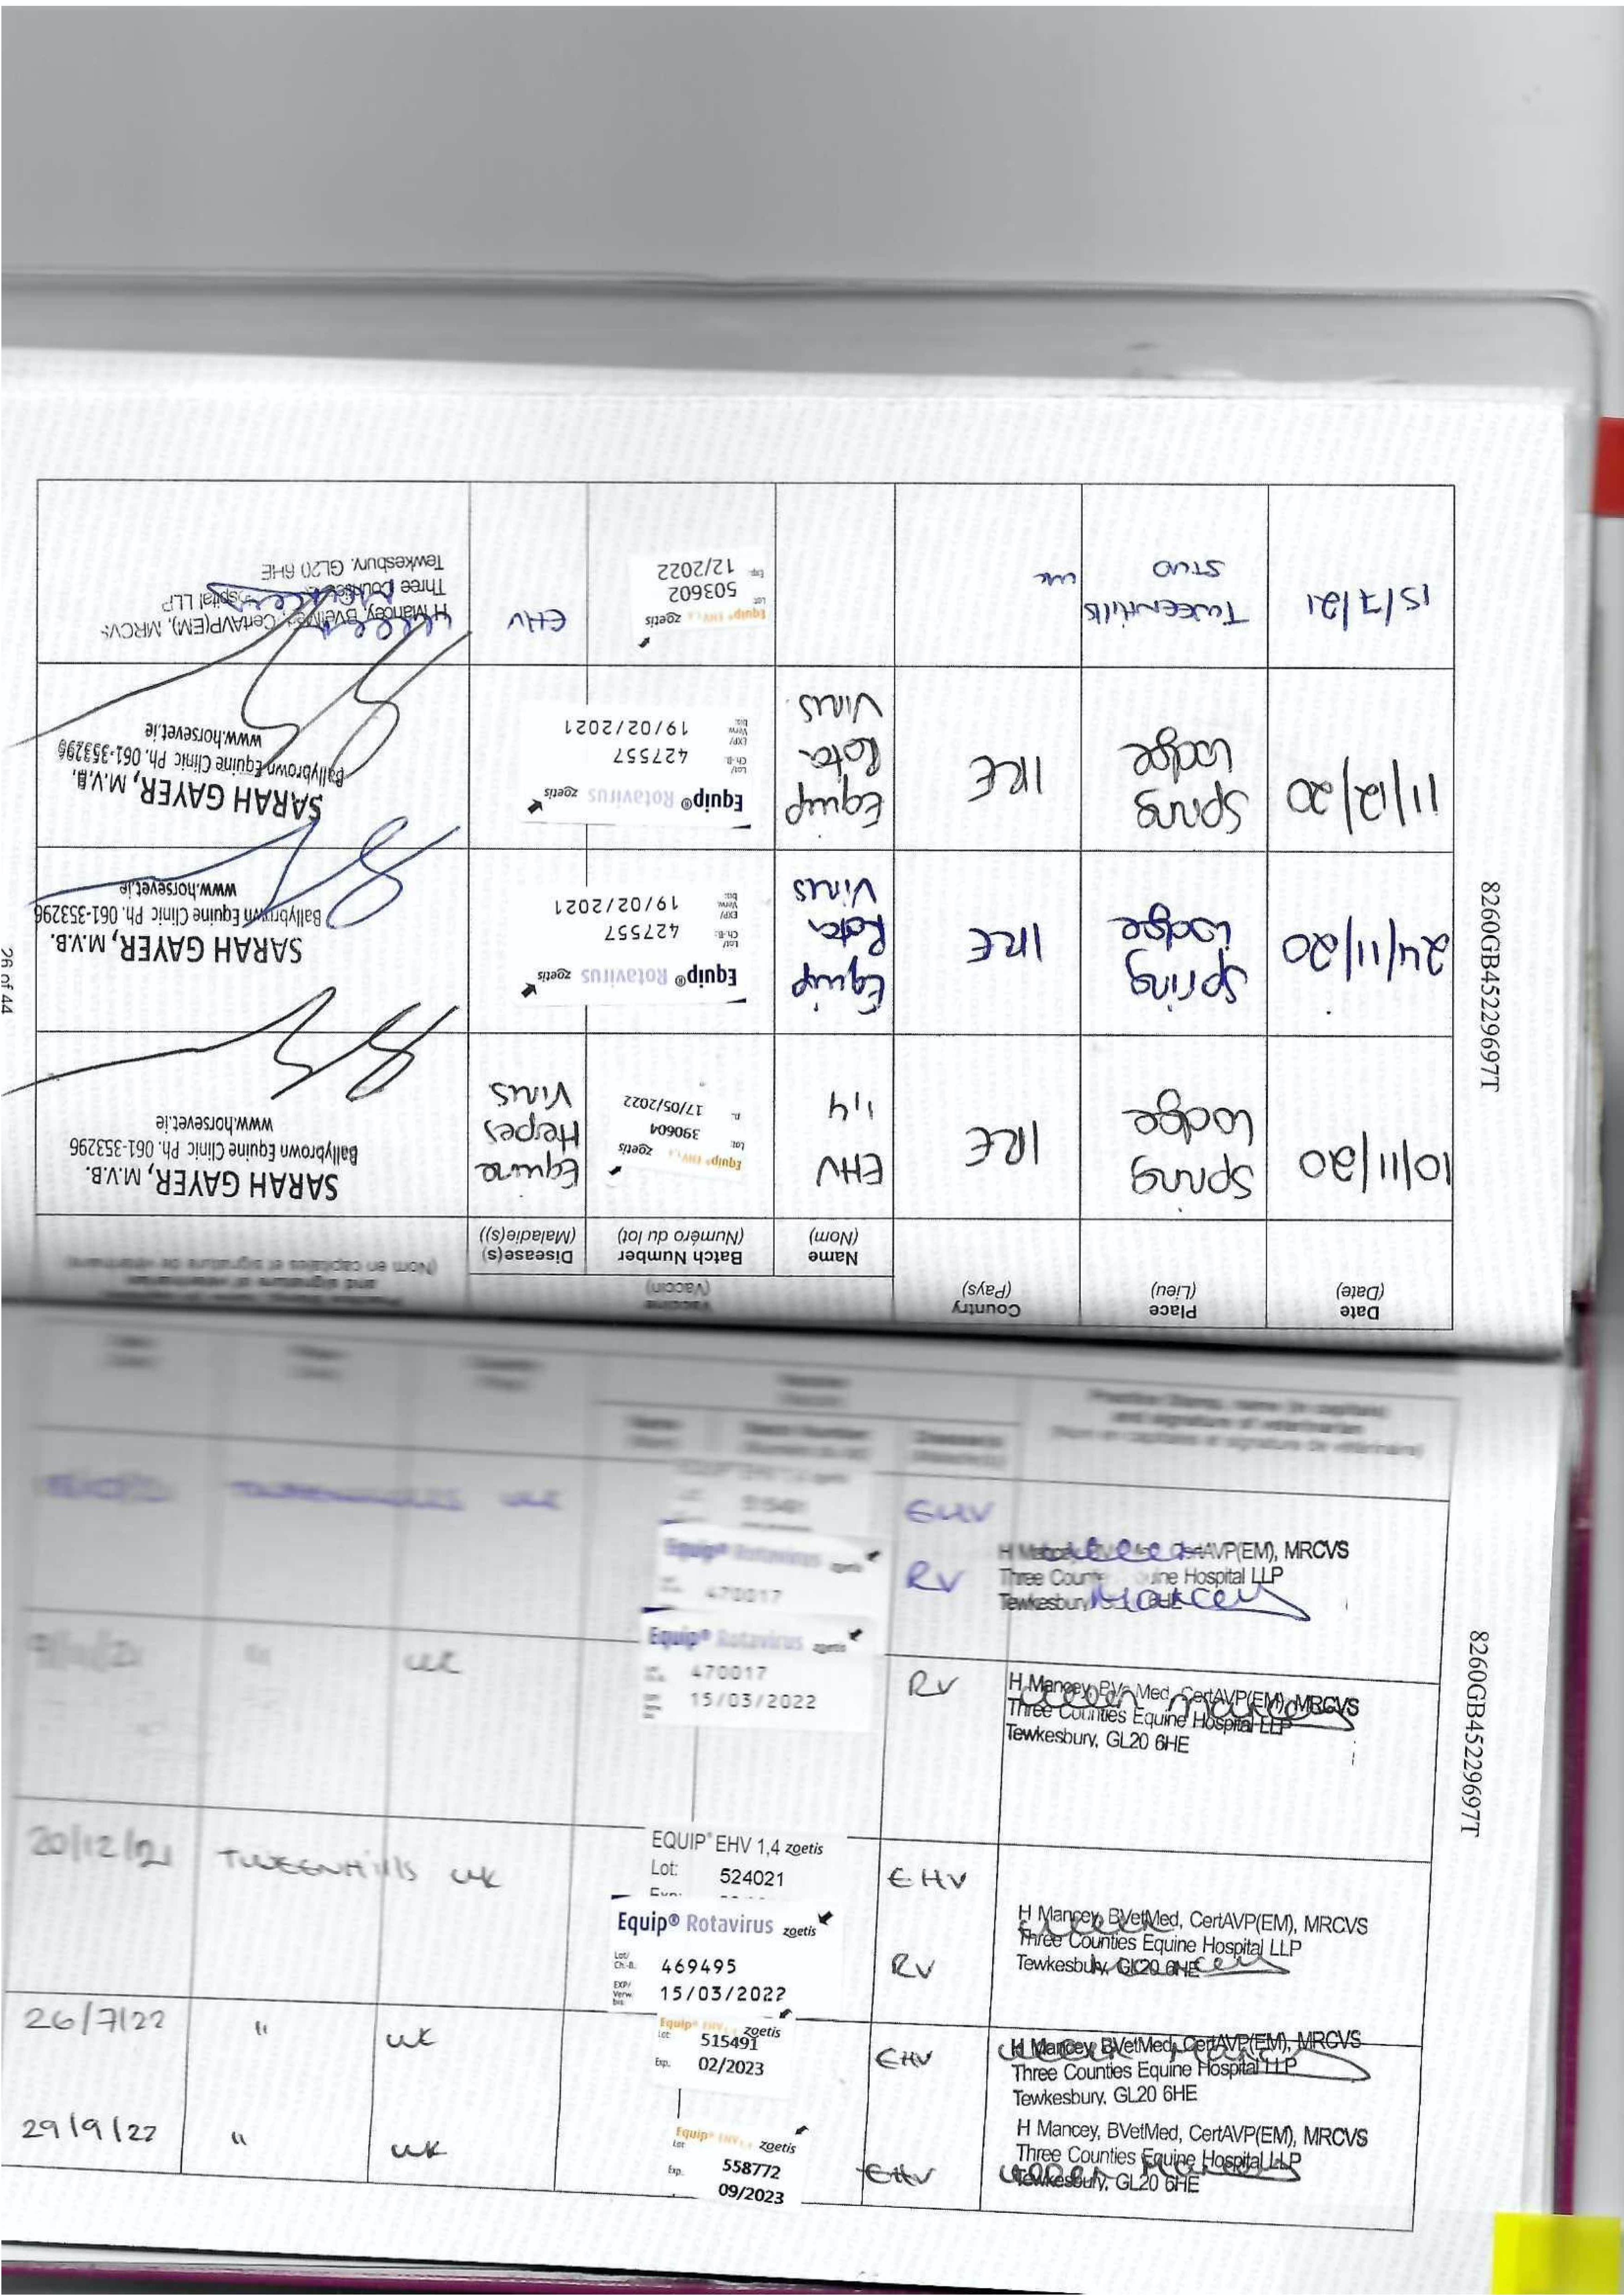 8260GB45229697T
Date
(Date)
Place
(Lieu)
Country
(Pays)
Vaccine
(Vaccin)
Name
(Nom)
Batch Number
(Numéro du lot)
Disease(s)
(Maladie(s))
and signature of veterinarian
(Nom en capitales et signature de vétérinaire)
10/11/20
Spring
Lodge
IRE
EHV
1,4
Equip® EHV 1,4 zoetis
Lot:
390604
17/05/2022
Equine
Herpes
Virus
SARAH GAYER, M.V.B.
Ballybrown Equine Clinic Ph. 061-353296
www.horsevet.ie
24/11/20
Spring
Lodge
IRE
Equip
Rota
Virus
Equip® Rotavirus zoetis
Lot/
Ch.-B.:
427557
EXP/
Verw.
bis:
19/02/2021
SARAH GAYER, M.V.B.
Ballybrown Equine Clinic Ph. 061-353296
www.horsevet.ie
11/12/20
Spring
Lodge
IRE
Equip
Rota
Virus
Equip® Rotavirus zoetis
Lot/
Ch.-B.:
427557
EXP/
Verw.
bis:
19/02/2021
SARAH GAYER, M.V.B.
Ballybrown Equine Clinic Ph. 061-353296
www.horsevet.ie
15/7/21
TWEENHills
STUD
UK
Equip® EHV 1,4 zoetis
Lot:
503602
Exp.
12/2022
EHV
H Mancey, BVetMed, CertAVP(EM), MRCVS
Three Counties Hospital LLP
Tewkesbury, GL20 6HE
26 of 44
Practice Stamp, name (in capitals)
and signature of veterinarian
(Nom en capitales et signature de vétérinaire)
UK
EQUIP® EHV 1,4 zoetis
EHV
Equip® Rotavirus zoetis
470017
RV
H Mancey, CertAVP(EM), MRCVS
Three Counties Equine Hospital LLP
Tewkesbury, 6HE
Mancey
"
UK
Equip® Rotavirus zoetis
470017
15/03/2022
RV
H Mancey, BVetMed, CertAVP(EM), MRCVS
Three Counties Equine Hospital LLP
Tewkesbury, GL20 6HE
20/12/21
TWEENHills
UK
EQUIP® EHV 1,4 zoetis
Lot:
524021
Exp:
EHV
Equip® Rotavirus zoetis
Lot/
Ch.-B.:
469495
EXP/
Verw.
bis:
15/03/2022
RV
H Mancey, BVetMed, CertAVP(EM), MRCVS
Three Counties Equine Hospital LLP
Tewkesbury, GL20 6HE
26/7/22
"
UK
Equip® EHV 1,4 zoetis
Lot:
515491
Exp.
02/2023
EHV
H Mancey, BVetMed, CertAVP(EM), MRCVS
Three Counties Equine Hospital LLP
Tewkesbury, GL20 6HE
29/9/22
"
UK
Equip® EHV 1,4 zoetis
Lot
558772
Exp.
09/2023
EHV
H Mancey, BVetMed, CertAVP(EM), MRCVS
Three Counties Equine Hospital LLP
Tewkesbury, GL20 6HE
8260GB45229697T